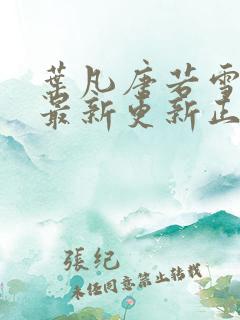 葉凡唐若雪
最新更新正
張紀
未经同意禁止转载